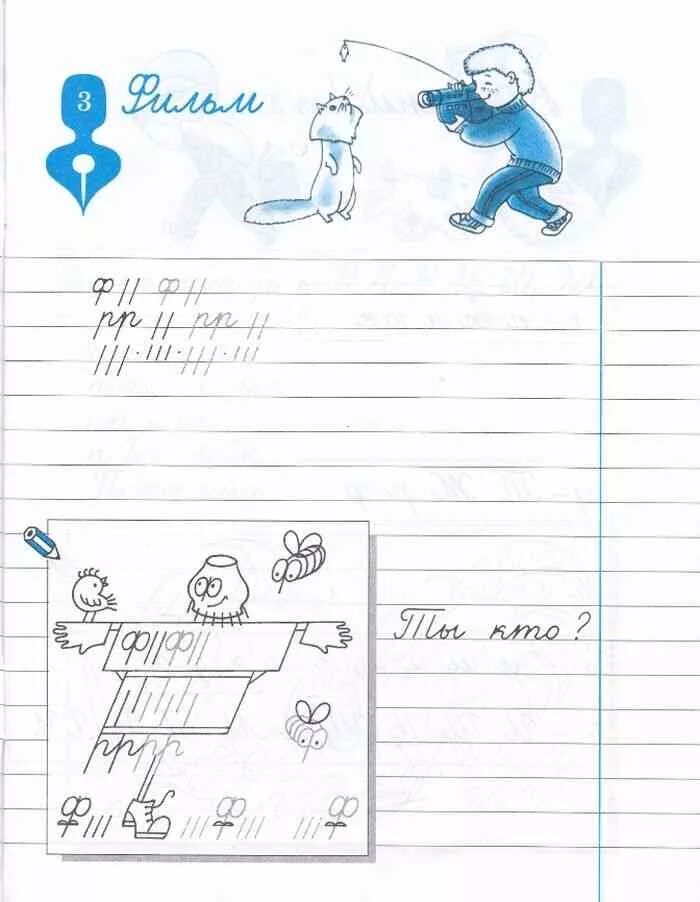 3 Фильм
ф || ф ||
рр || рр ||
||| · ||| · ||| · |||
Ты кто?
ф||ф||
рррр
ф ||| ф ||| ф